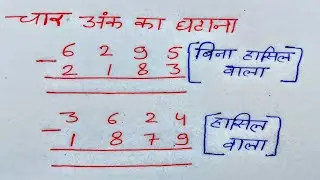 चार अंक का घटाना
6 2 9 5
- 2 1 8 3
[बिना हासिल वाला]
3 6 2 4
- 1 8 7 9
[हासिल वाला]